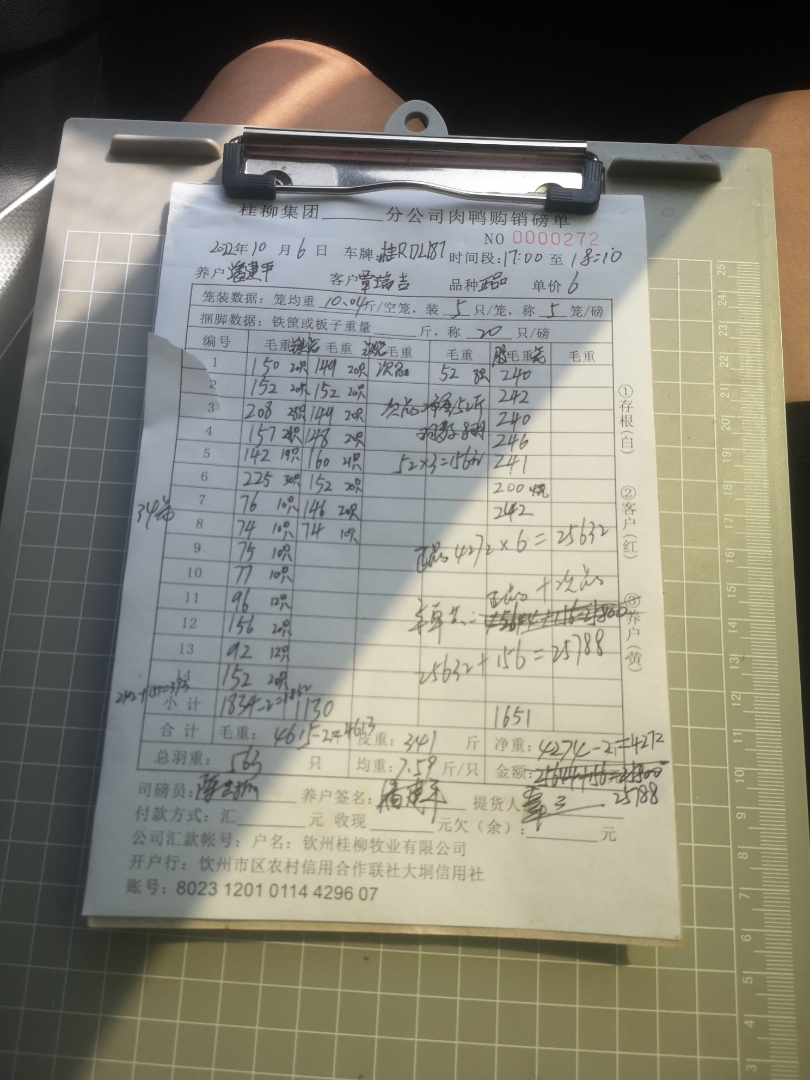 桂柳集团______分公司肉鸭购销磅单
NO 0000272
2022年10月6日 车牌:桂RDL187 时间段:17:00 至 18:10
养户 潘建平 客户 覃瑞吉 品种 正品 单价 6
笼装数据：笼均重 10.04 斤/空笼，装 5 只/笼，称 5 笼/磅
捆脚数据：铁筐或板子重量____斤，称 20 只/磅
编号 毛重 毛重 毛重 毛重 毛重 毛重
1 150 20只 149 20只 次品 52 8只 240
2 152 20只 152 20只 242
3 208 28只 149 20只 240
4 157 148 20只 246
5 142 19只 160 21只 52×3=156 241
6 225 30只 152 20只 200
7 76 10只 146 20只 242
8 74 10只 74 10只
9 75 10只
正品 4272×6=25632
10 77 10只
11 96 12只
正品+次品
12 156 20只
13 92 12只
25632+156=25788
14 152 20只
小计 1834-2=1832 1130 1651
合计 毛重: 4615-2=4613 皮重: 341 斤 净重: 4274-2=4272
总羽重: 563 只 均重: 7.59 斤/只 金额: 25788
司磅员: 养户签名: 潘建平 提货人
付款方式：汇______元 收现______元欠（余）：______元
公司汇款帐号：户名：钦州桂柳牧业有限公司
开户行：钦州市区农村信用合作联社大垌信用社
账号：8023 1201 0114 4296 07
①存根(白)
②客户(红)
③养户(黄)
25
24
23
22
21
20
19
18
17
16
15
14
13
12
11
10
9
8
7
6
5
4
3